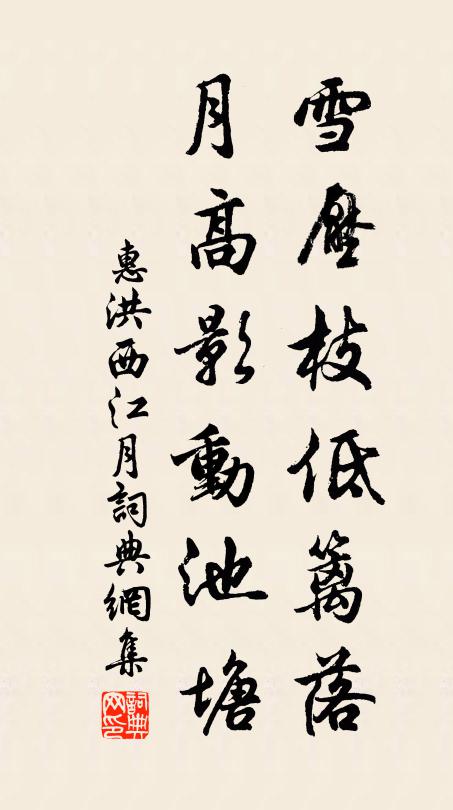 雪壓枝低篱落
月高影動池塘
惠洪西江月詞典網集
詞典網印